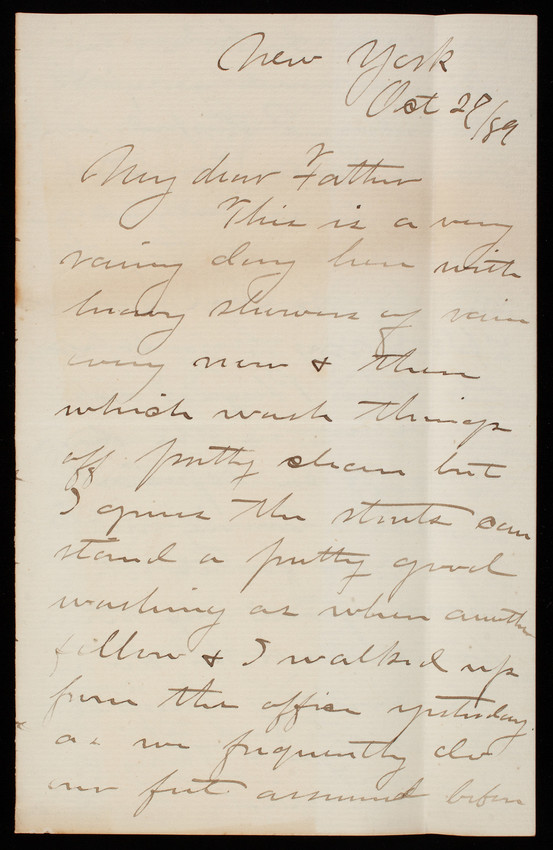 New York
Oct 29/89
My dear Father
This is a very
rainy day here with
heavy showers of rain
every now & then
which wash things
off pretty clean but
I guess the streets can
stand a pretty good
washing as when another
fellow & I walked up
from the office yesterday
as we frequently do
our feet assumed before